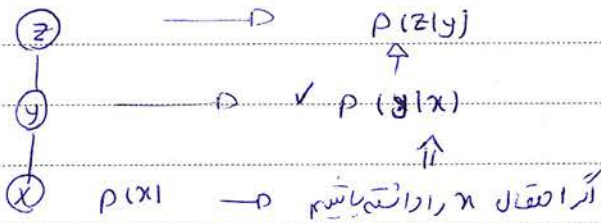 z → p(z|y)
y → ✓ p(y|x)
x p(x) → اگر احتمال x را داشته باشیم